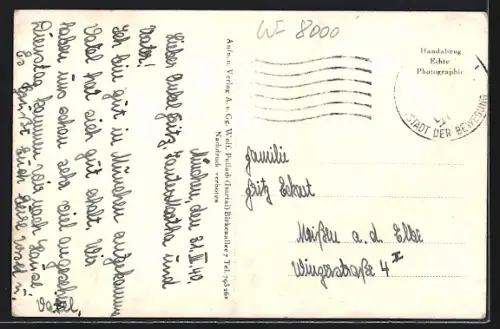 WF 8000
Handabzug
Echte
Photographie
STADT DER BEWEGUNG
Aufn. u. Verlag A. u. Gg. Wolf, Pullach (Isartal) Birkenallee 7 Tel. 793261
Nachdruck verboten
München, den 31. III. 40.
Lieber Onkel Fritz, Tante Martha und
Vater!
Ich bin gut in München angekommen
Vatel hat sich gut erholt, Wir
haben uns schon sehr viel angesehen,
Dienstag kommen wir nach Hause.
Es grüßt Euch
Vatel,
Familie
Fritz Eckert
Meißen a. d. Elbe
Wingerstraße 4 II